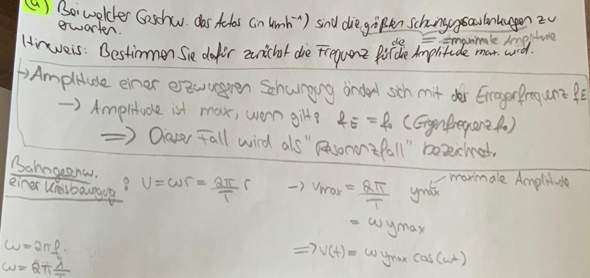 a) Bei welcher Geschw. des Autos (in kmh⁻¹) sind die größten Schwingungsauslenkungen zu
erwarten. = maximale Amplitude
Hinweis: Bestimmen Sie dafür zunächst die Frequenz für die die Amplitude max. wird.
→ Amplitude einer erzwungenen Schwingung ändert sich mit der Erregerfrequenz f_E
→ Amplitude ist max, wenn gilt: f_E = f₀ (Eigenfrequenz f₀)
⇒ Dieser Fall wird als "Resonanzfall" bezeichnet.
Bahngeschw.
einer Kreisbewegung: V = ωr = 2π/T r → Vmax = 2π/T ymax maximale Amplitude
= ω ymax
ω = 2πf
⇒ V(t) = ω ymax cos(ωt)
ω = 2π 1/T